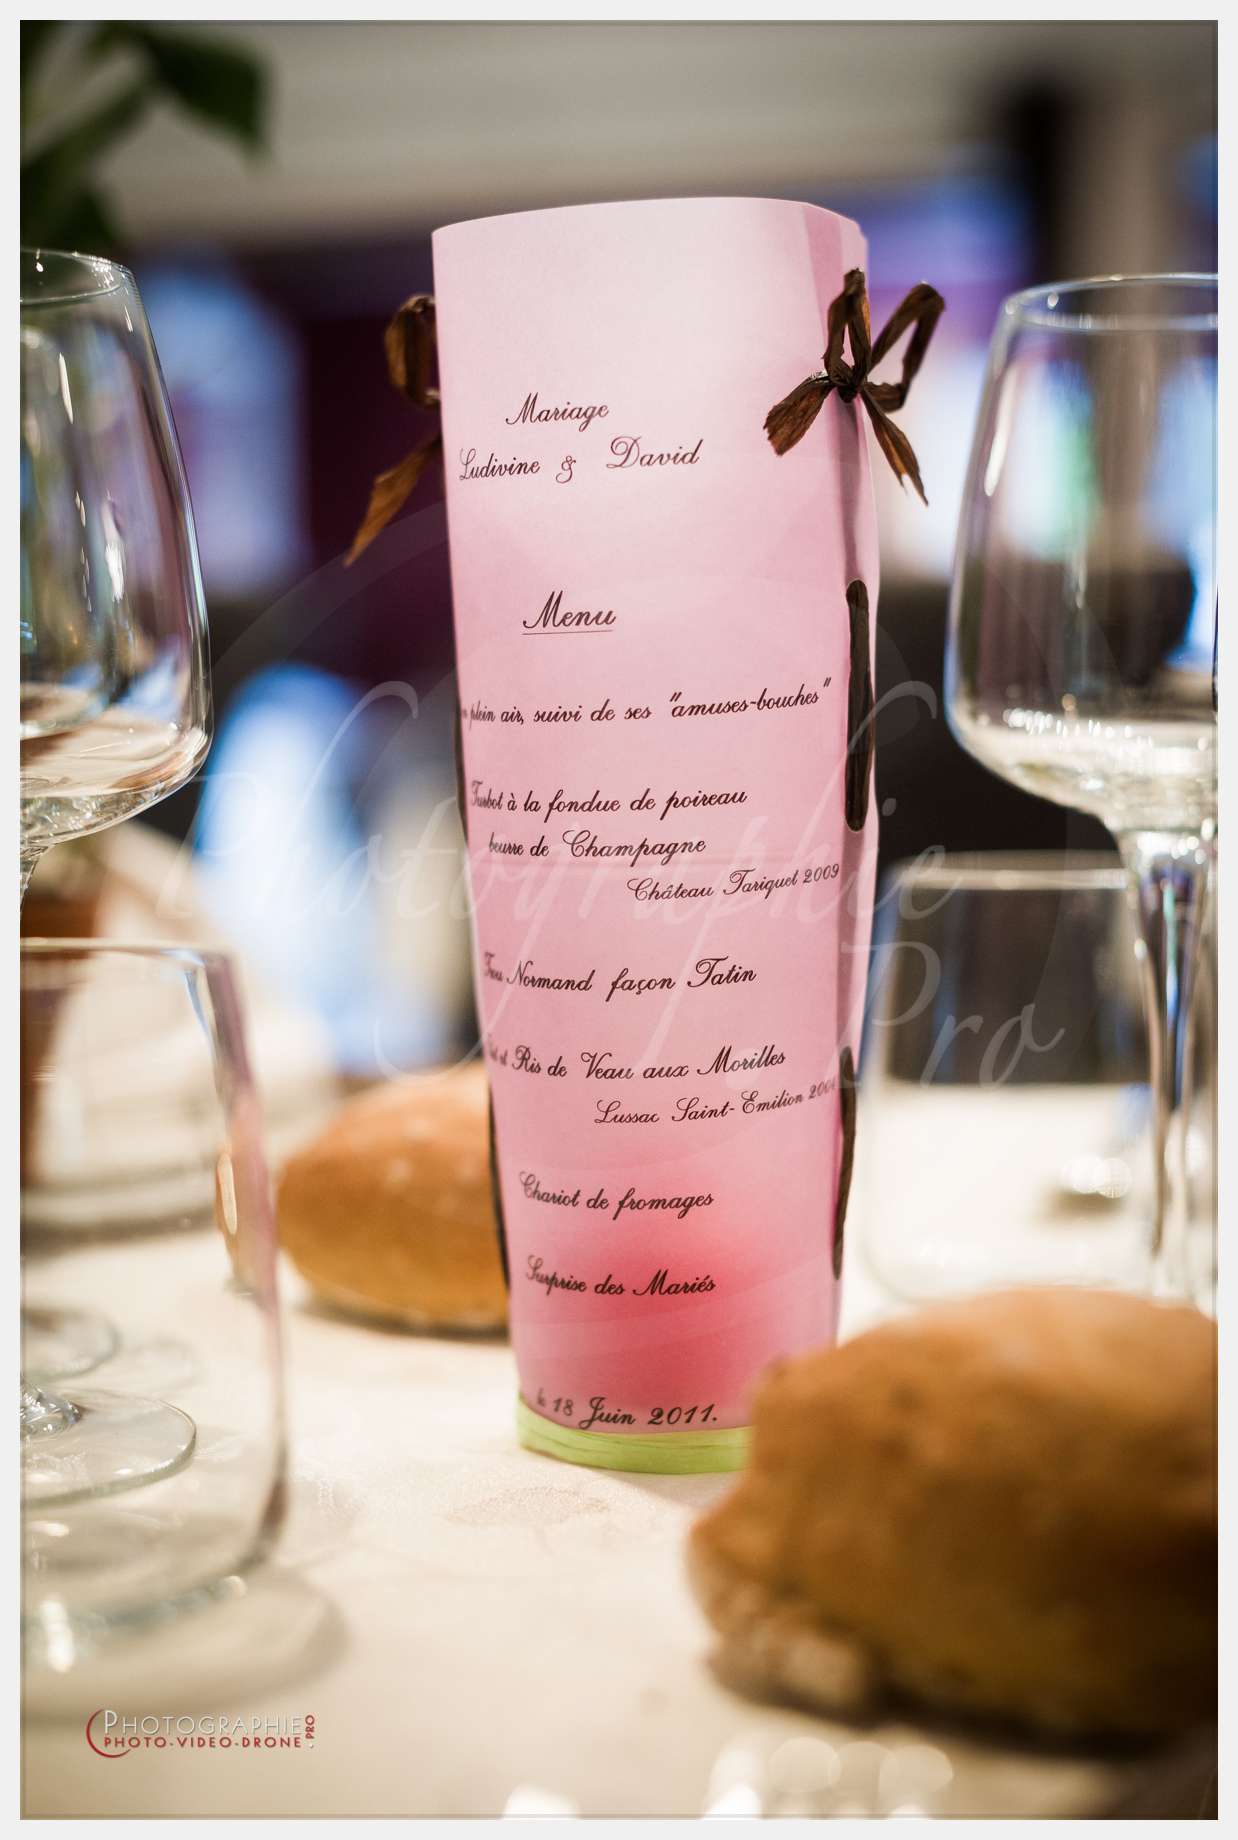 Mariage
Ludivine & David
Menu
plein air, suivi de ses "amuses-bouches"
Turbot à la fondue de poireau
beurre de Champagne
Château Tariquet 2009
Trou Normand façon Tatin
Ris de Veau aux Morilles
Lussac Saint-Emilion
Chariot de fromages
Surprise des Mariés
le 18 Juin 2011.
Photographie
Pro
PHOTOGRAPHIE.PRO
PHOTO-VIDEO-DRONE